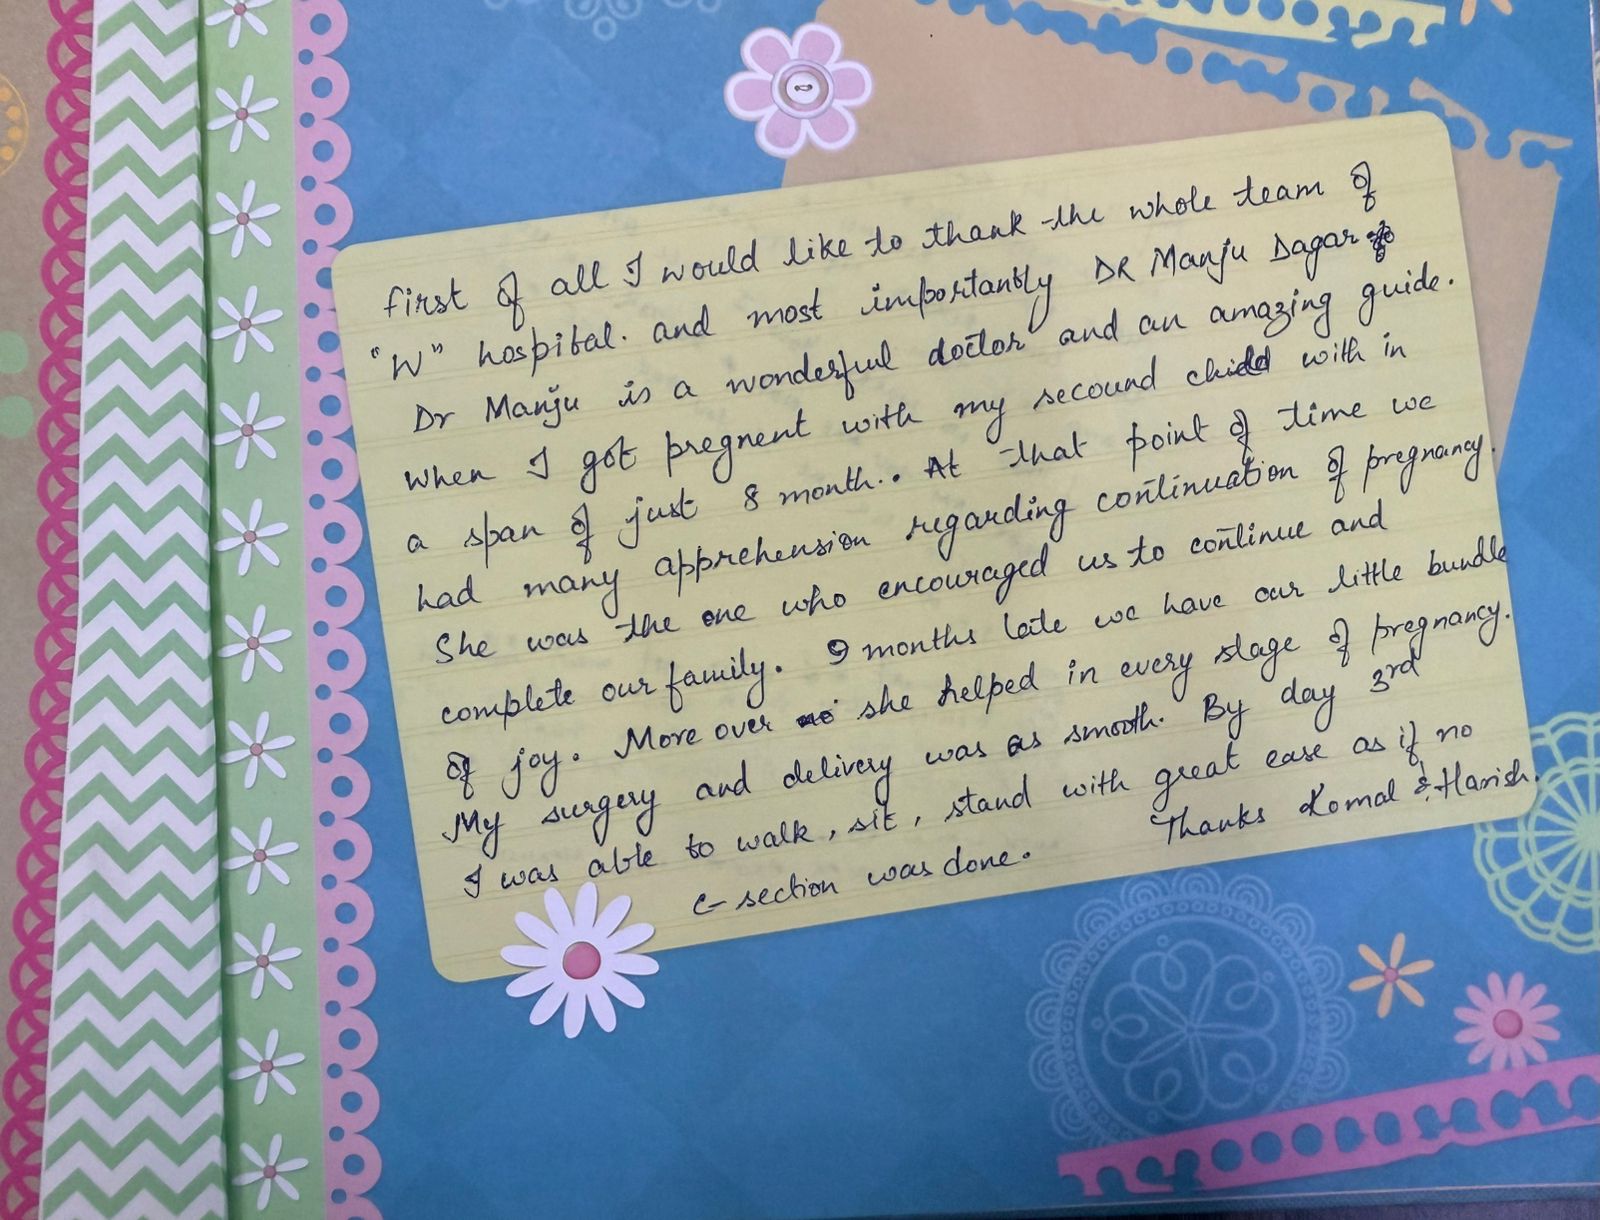 first of all I would like to thank the whole team of
"W" hospital. and most importantly DR Manju Dagar
Dr Manju is a wonderful doctor and an amazing guide.
When I got pregnent with my secound child with in
a span of just 8 month.. At that point of time we
had many apprehension regarding continuation of pregnancy.
She was the one who encouraged us to continue and
complete our family. 9 months late we have our little bundle
of joy. More over she helped in every stage of pregnancy.
My surgery and delivery was as smooth. By day 3rd
I was able to walk, sit, stand with great ease as if no
c-section was done.
Thanks Komal & Harish.